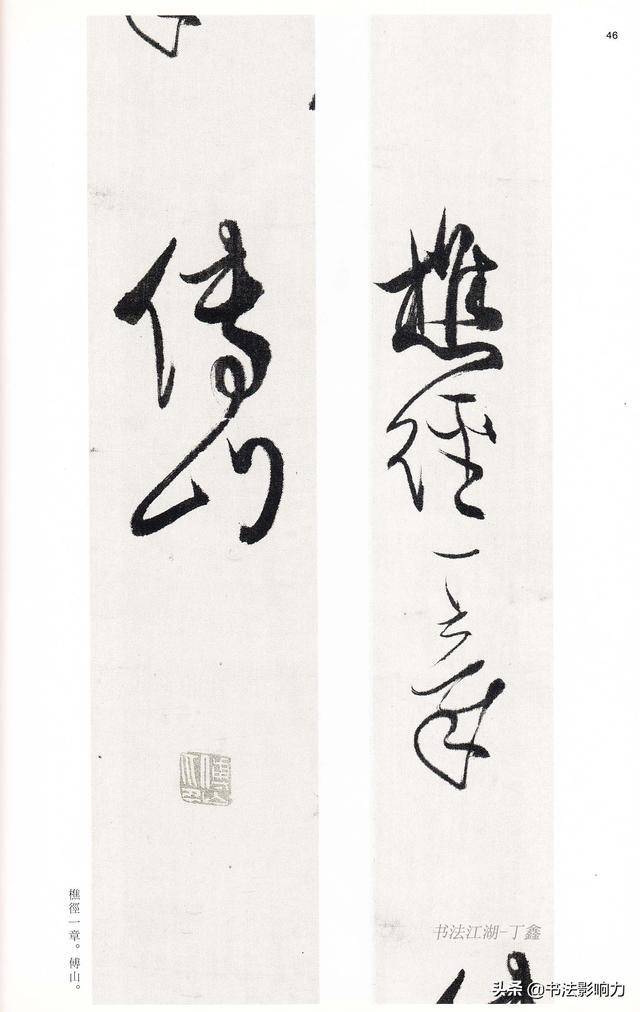 46
樵徑一章
傅山
樵徑一章。傅山。
书法江湖-丁鑫
头条 @书法影响力